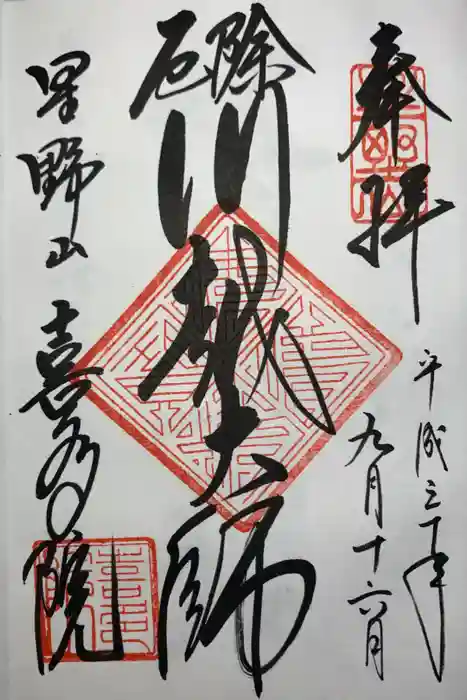 奉拝
平成三十年
九月十六日
厄除
川越大師
星野山
喜多院